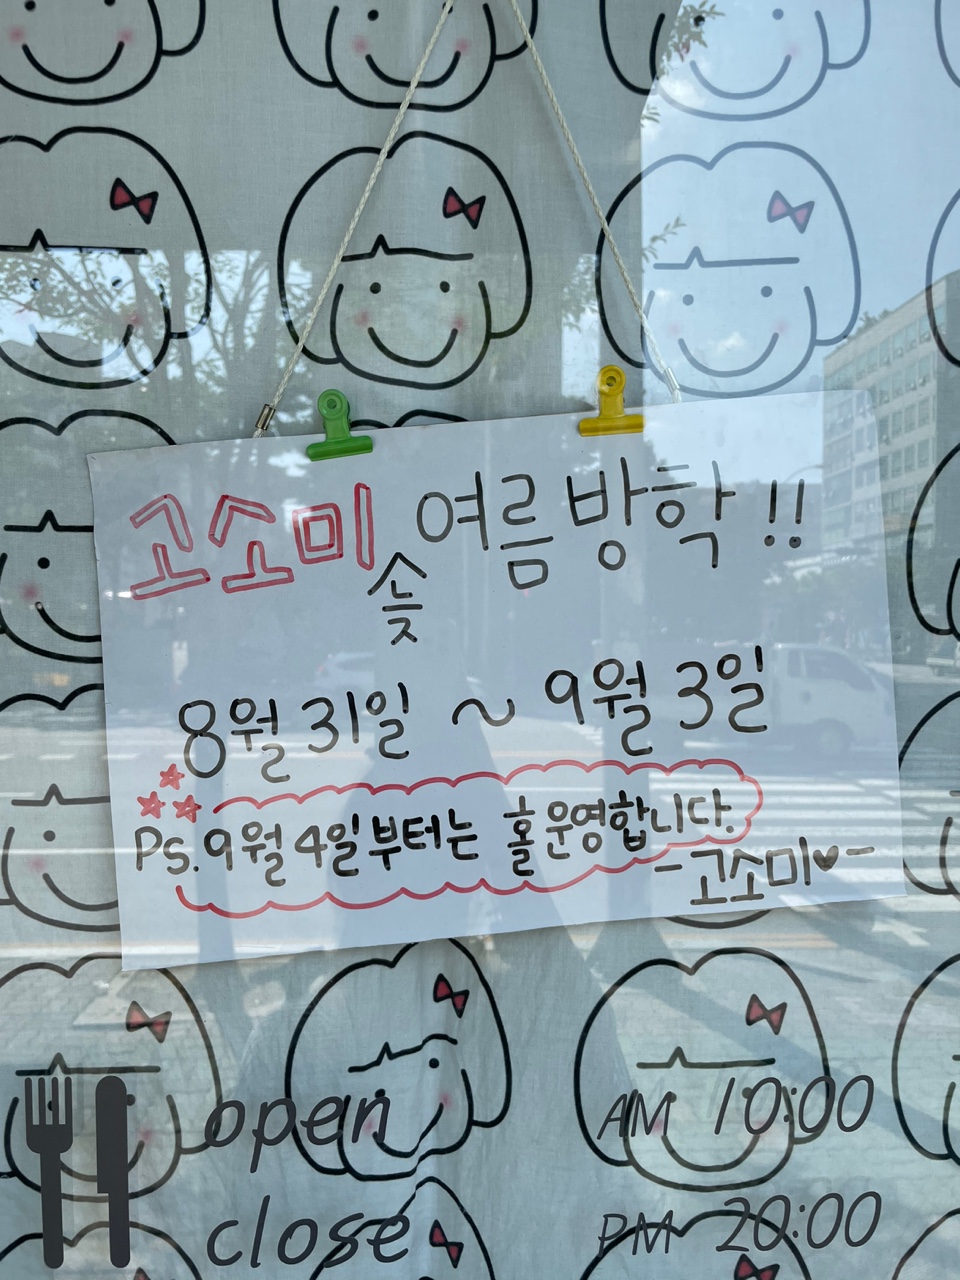 고소미 늦 여름 방학!!
8월 31일 ~ 9월 3일
Ps. 9월 4일부터는 홀운영합니다.
-고소미♥-
open AM 10:00
close PM 20:00